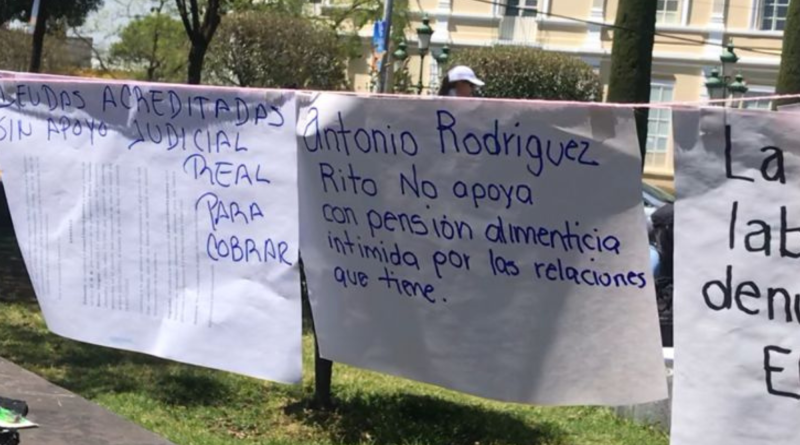 DEUDAS ACREDITADAS
SIN APOYO JUDICIAL
REAL
PARA
COBRAR
Antonio Rodriguez
Rito No apoya
con pensión alimenticia
intimida por las relaciones
que tiene.
La
lab
denu
E